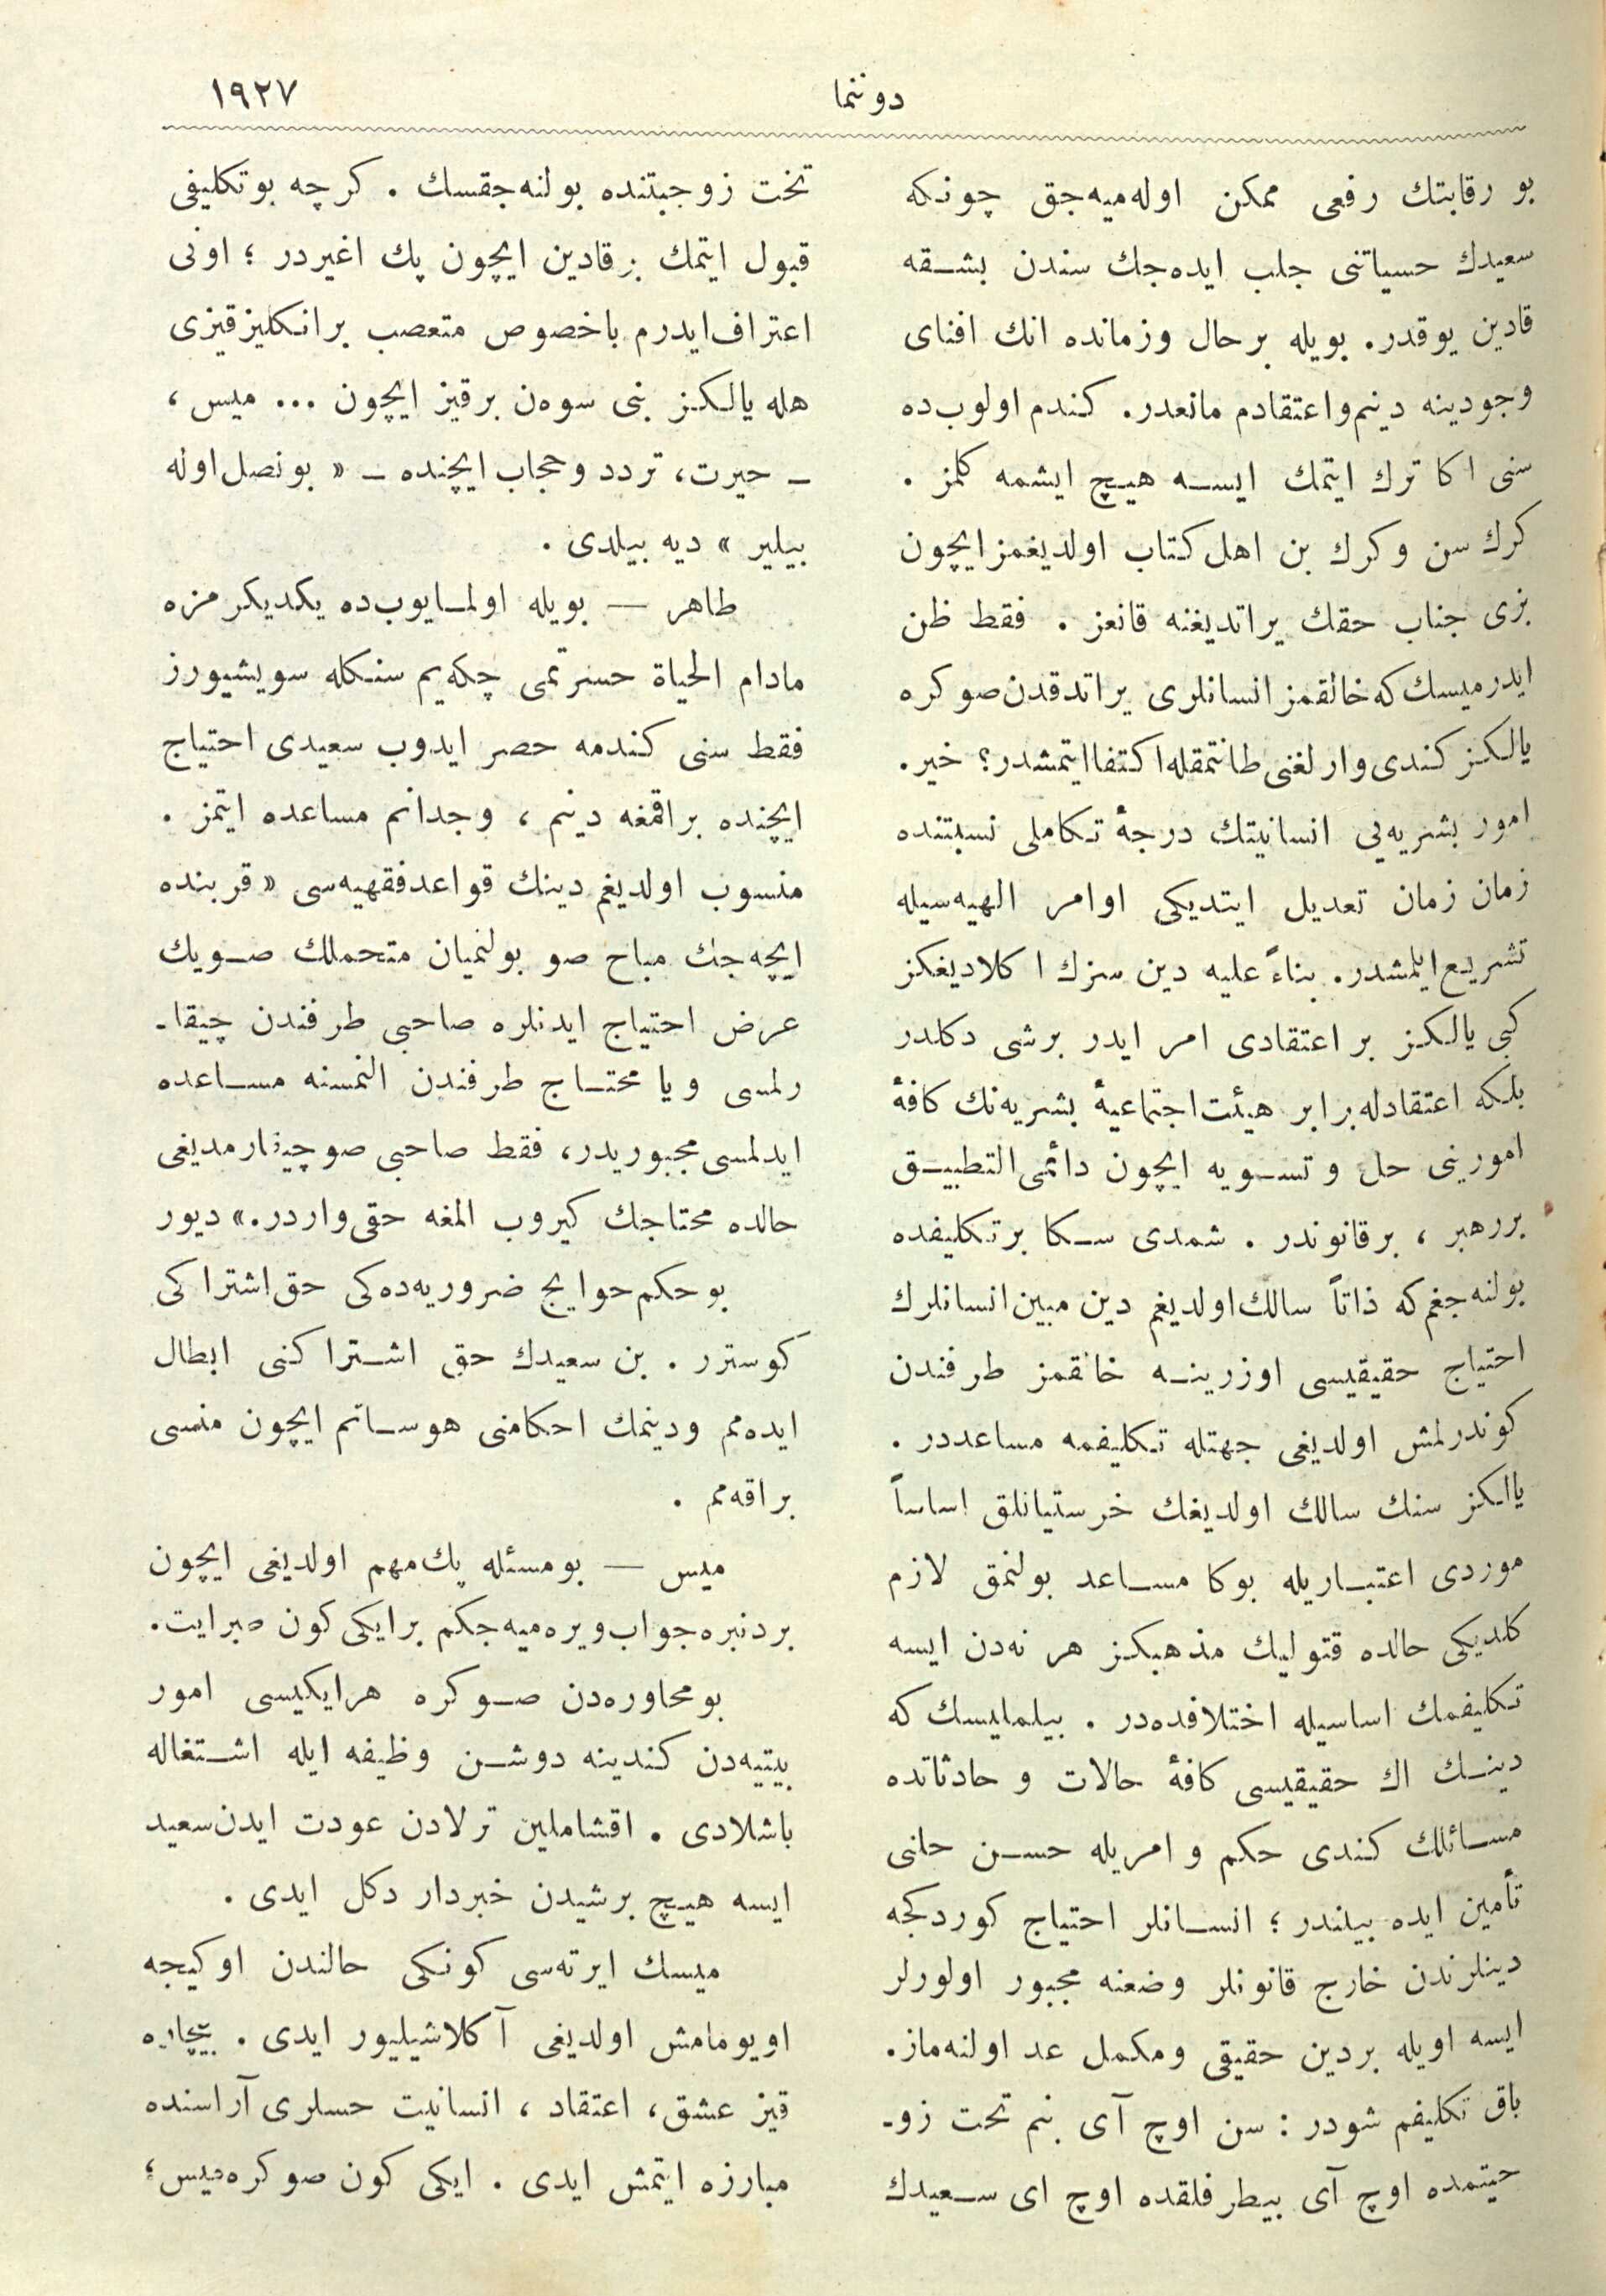 دوننما
١٩٢٧
بو رقابتك رفعى ممكن اوله‌ميه‌جق چونكه
سعيدك حسياتنى جلب ايده‌جك سندن بشقه
قادين يوقدر. بويله برحال وزمانده انك افناى
وجودينه دينم‌واعتقادم مانعدر. كندم اولوب‌ده
سنى اكا ترك ايتمك ايسه هيچ ايشمه كلمز .
كرك سن وكرك بن اهل كتاب اولديغمز ايچون
بزى جناب حقك يراتديغنه قانعز . فقط ظن
ايدرميسك كه خالقمز انسانلرى يراتدقدن صوكره
يالكز كندى وارلغنى طانتمقله اكتفا ايتمشدر؟ خير.
امور بشريه‌يى انسانيتك درجهٔ تكاملى نسبتنده
زمان زمان تعديل ايتديكى اوامر الهيه‌سيله
تشريع ايلمشدر. بناءً عليه دين سزك اكلاديغكز
كبى يالكز بر اعتقادى امر ايدر برشى دكلدر
بلكه اعتقادله برابر هيئت اجتماعيهٔ بشريه‌نك كافهٔ
امورينى حل وتسويه ايچون دائمى التطبيق
بررهبر ، برقانوندر . شمدى سكا برتكليفده
بولنه‌جغم كه ذاتاً سالك اولديغم دين مبين انسانلرك
احتياج حقيقيسى اوزرينه خالقمز طرفندن
كوندرلمش اولديغى جهتله تكليفمه مساعددر .
يالكز سنك سالك اولديغك خرستيانلق اساساً
موردى اعتباريله بوكا مساعد بولنمق لازم
كلديكى حالده قتوليك مذهبكز هر نه‌دن ايسه
تكليفمك اساسيله اختلافده‌در . بيلمليسك كه
دينك اك حقيقيسى كافهٔ حالات و حادثاتده
مسائلك كندى حكم و امريله حسن حلنى
تأمين ايده بيلندر ؛ انسانلر احتياج كوردكجه
دينلرندن خارج قانونلر وضعنه مجبور اولورلر
ايسه اويله بردين حقيقى ومكمل عد اولنه‌ماز.
باق تكليفم شودر : سن اوچ آى بنم تحت زو-
جيتمده اوچ آى بيطرفلقده اوچ اى سعيدك
تحت زوجيتنده بولنه‌جقسك . كرچه بوتكليفى
قبول ايتمك برقادين ايچون پك اغيردر ؛ اونى
اعتراف ايدرم باخصوص متعصب برانكليز قيزى
هله يالكز بنى سوه‌ن برقيز ايچون ... ميس ،
ـ حيرت، تردد وحجاب ايچنده ـ « بونصل اوله
بيلير » ديه بيلدى .
طاهر — بويله اولمايوب‌ده يكديكرمزه
مادام الحياة حسرتمى چكه‌يم سنكله سويشيورز
فقط سنى كندمه حصر ايدوب سعيدى احتياج
ايچنده براقمغه دينم ، وجدانم مساعده ايتمز .
منسوب اولديغم دينك قواعدفقهيه‌سى « قربنده
ايچه‌جك مباح صو بولنميان متحملك صويك
عرض احتياج ايدنلره صاحبى طرفندن چيقا-
رلمسى ويا محتاج طرفندن المسنه مساعده
ايدلمسى مجبوريدر، فقط صاحبى صو چيقارمديغى
حالده محتاجك كيروب المغه حقى واردر.» ديور
بوحكم حوايج ضروريه‌ده‌كى حق اشتراكى
كوسترر . بن سعيدك حق اشتراكنى ابطال
ايده‌مم ودينمك احكامنى هوساتم ايچون منسى
براقه‌مم .
ميس — بومسئله پك مهم اولديغى ايچون
بردنبره جواب ويره‌ميه‌جكم برايكى كون صبرايت.
بومحاوره‌دن صوكره هرايكيسى امور
بيتيه‌دن كندينه دوشن وظيفه ايله اشتغاله
باشلادى . اقشاملين ترلادن عودت ايدن سعيد
ايسه هيچ برشيدن خبردار دكل ايدى .
ميسك ايرته‌سى كونكى حالندن اوكيجه
اويومامش اولديغى آكلاشيليور ايدى . بيچاره
قيز عشق، اعتقاد ، انسانيت حسلرى آراسنده
مبارزه ايتمش ايدى . ايكى كون صوكره ميس؛